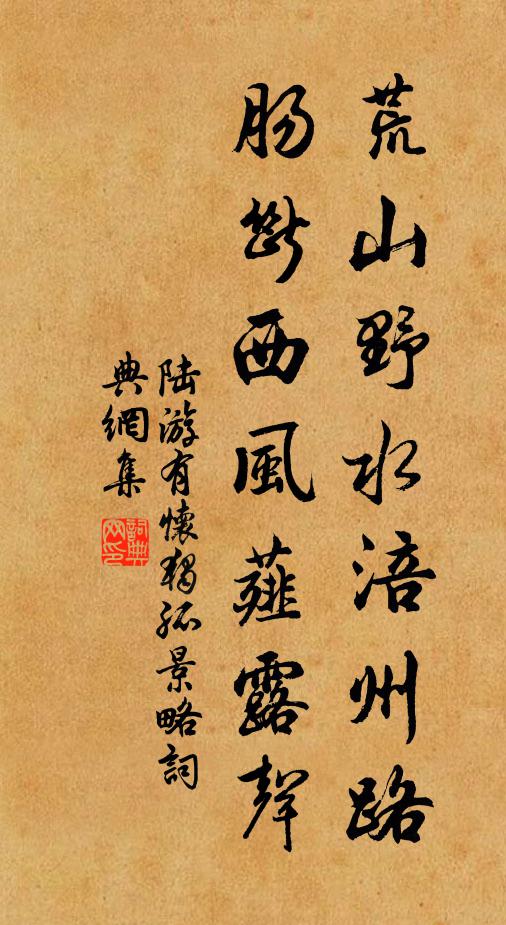 荒山野水涪州路
肠断西風薤露聲
陆游有懷獨孤景略詞
典網集
詞典网印